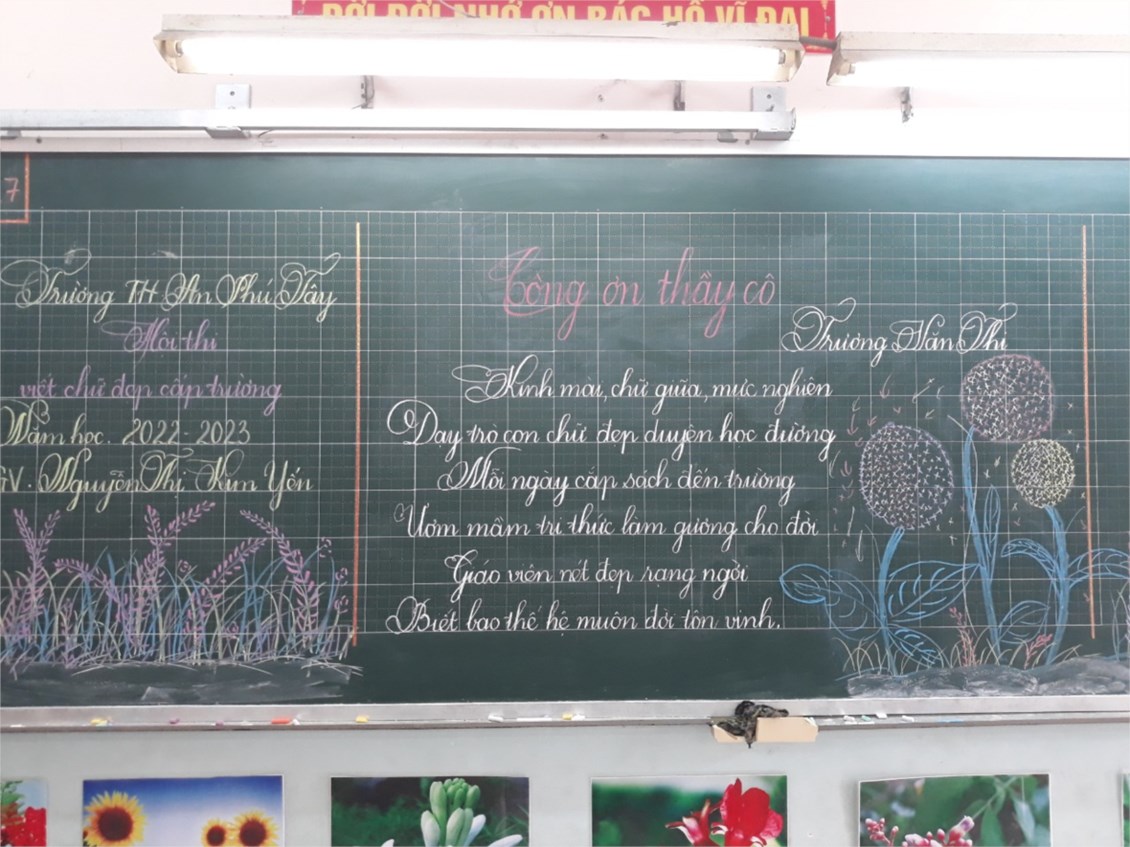 ĐỜI ĐỜI NHỚ ƠN BÁC HỒ VĨ ĐẠI
7
Trường TH An Phú Tây
Hội thi
viết chữ đẹp cấp trường
Năm học. 2022-2023
GV. Nguyễn Thị Kim Yến
Công ơn thầy cô
Trương Văn Thi
Kính mài, chữ giũa, mực nghiên
Dạy trò con chữ đẹp duyên học đường
Mỗi ngày cắp sách đến trường
Ươm mầm tri thức làm gương cho đời
Giáo viên nét đẹp rạng ngời
Biết bao thế hệ muôn đời tôn vinh.